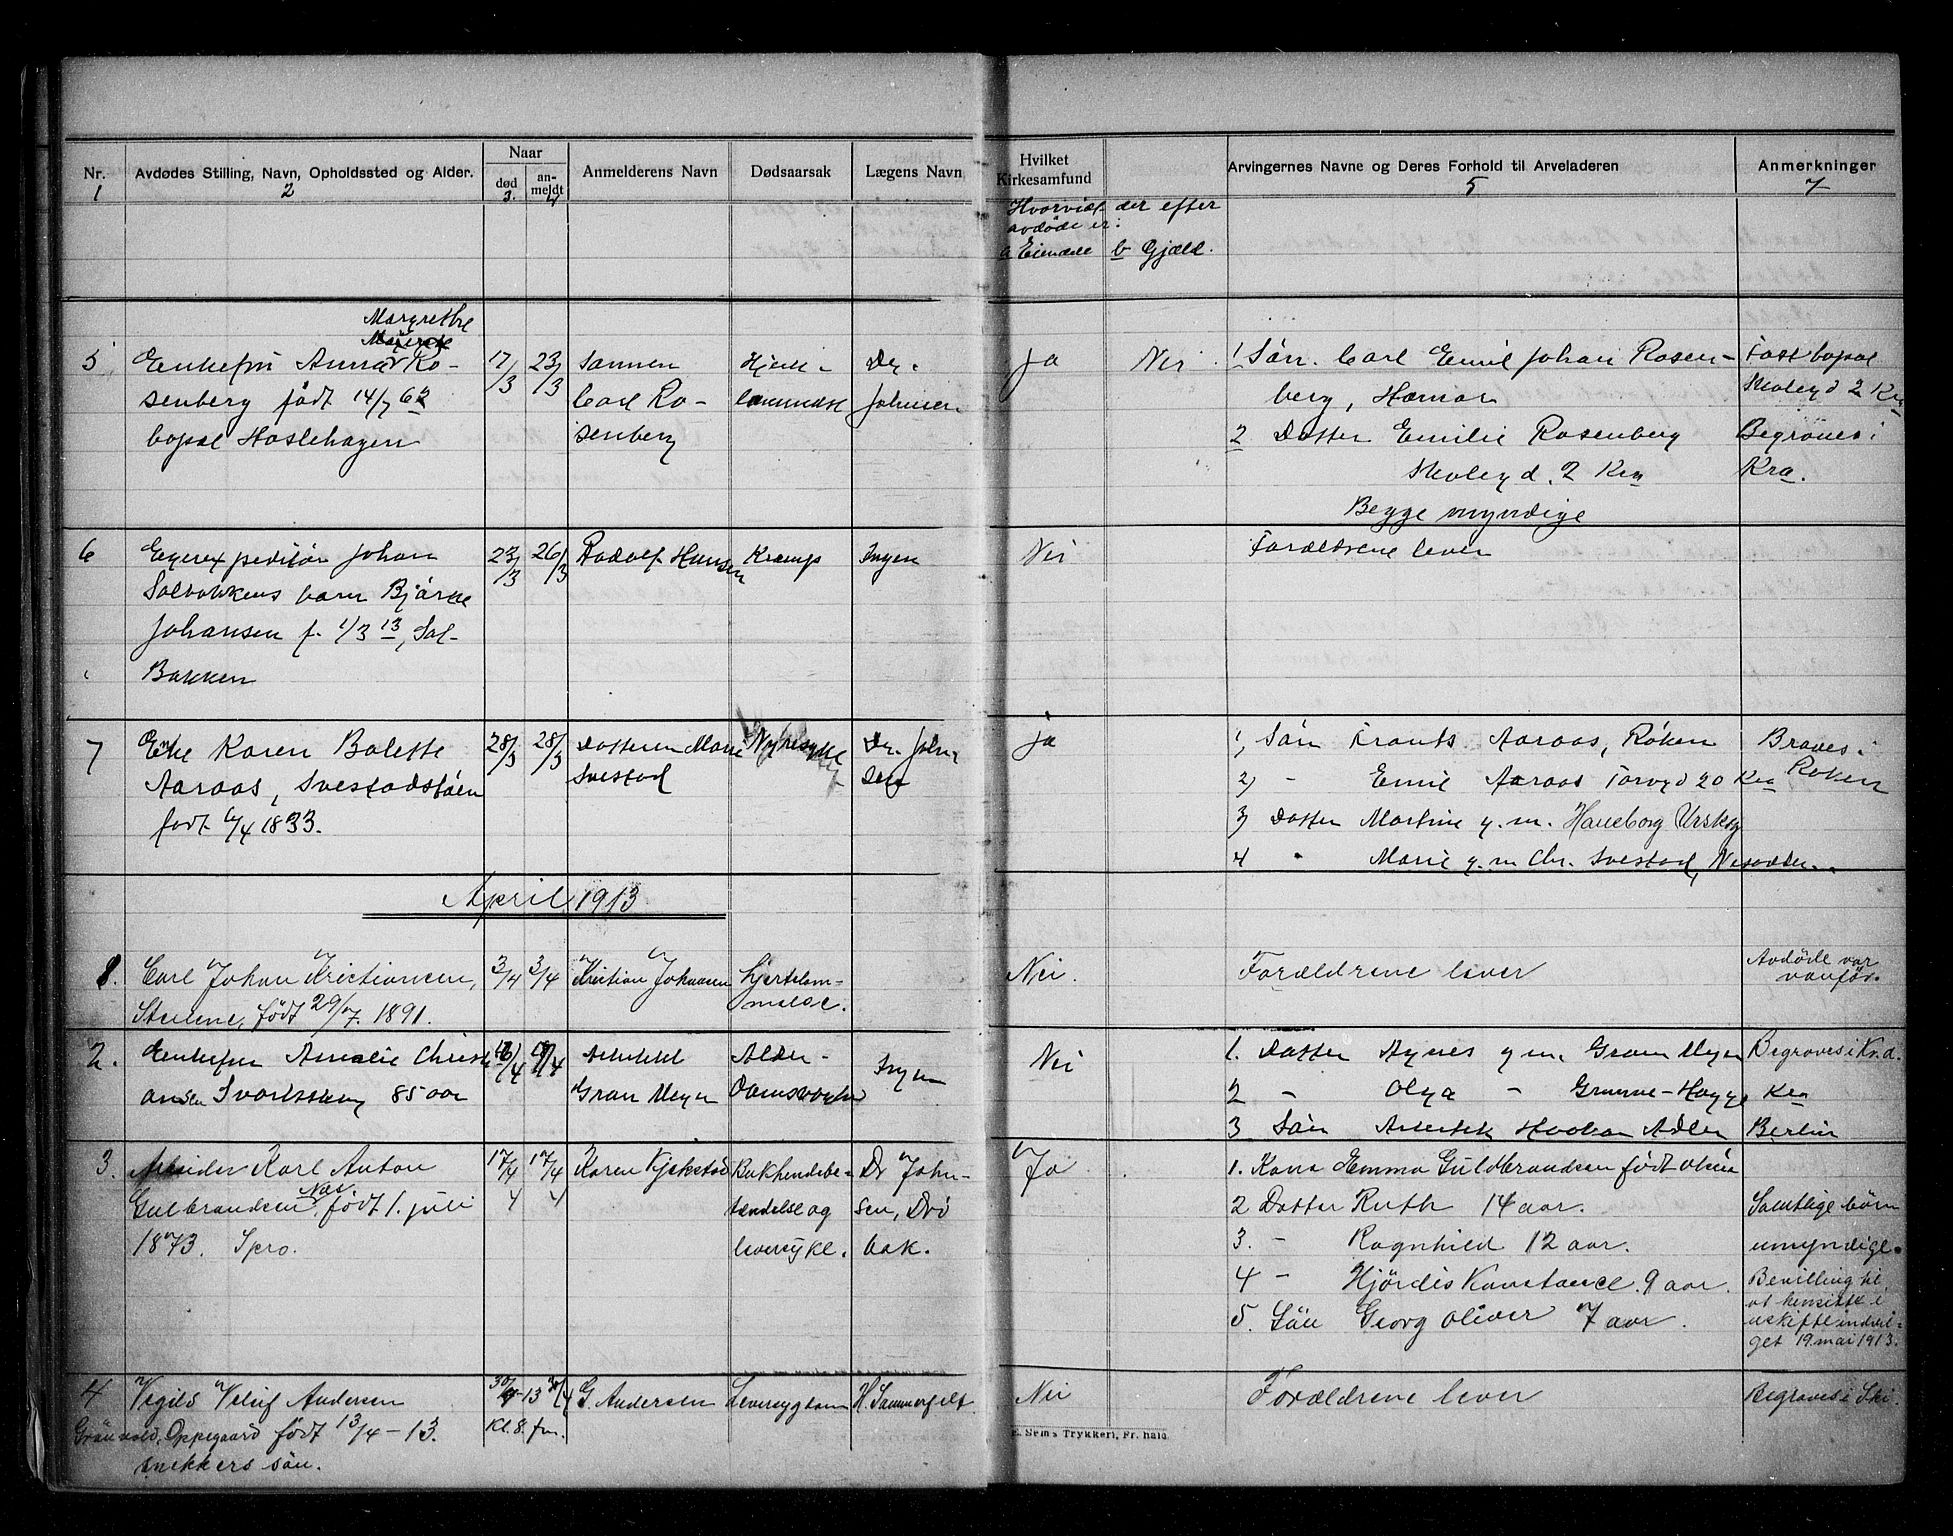 Nr. Avdødes Stilling, Navn, Opholdssted og Alder. Naar død anmeldt Anmelderens Navn Dødsaarsak Lægens Navn Hvilket Kirkesamfund Arvingernes Navne og Deres Forhold til Arveladeren Anmerkninger
1 2 3. 4 5 7
Hvorvidt der efter
avdøde er:
a Eiendele b Gjæld.
Margrethe
5 Enkefru Anna Ro- 17/3 23/3 Sønnen Hjerte- Dr. Ja Nei 1, Søn. Carl Emil Johan Rosen- Fast bopæl
senberg født 14/7 62 Carl Ro- lammelse Johnsen berg, Hamar Skoleg d 2 Kra
bopæl Haslehagen senberg 2 Datter Emilie Rosenberg Begraves i
Skoleg d. 2 Kra Kra.
Begge myndige
6 Egerexpeditør Johan 23/3 26/3 Rodolf Hansen Kramp Ingen Nei Forældrene lever
Solbakkens barn Bjarne
Johansen f. 1/3 13, Sol-
Bakken
7 Enke Karen Bolette 28/3 28/3 Datteren Marie Nyresyke Dr. John- ja 1, Søn Frants Aaraas, Røken Braves i
Aaraas, Svestadstøen Svestad sen 2) - Emil Aaraas Torvgd 20 Kra Røken
født 6/4 1833. 3) Datter Martine g. m. Haneborg Urskog
4 " Marie g. m Chr. Svestad, Nesodden.
April 1913
1. Carl Johan Kristiansen, 3/4 3/4 Kristian Johansen Hjertelam- Nei. Forældrene lever Avdøde var
Steilene, født 29/7. 1891. melse. vanfør.
2. Enkefru Amalie Christi 16/4 17/4 Arkitekt Alder- Ingen Nei 1. Datter Agnes g m. Gran Meyer Begraves i Kr.a.
ansen Svartskog 85 aar Gran Meyer 2 - Olga - Hagge Kra
3 Søn Arkitekt Haakon Adler Berlin
3. Arbeider Karl Anton 17/4 17/4 Karen Kjekstad Bukhindebe- Dr John- Ja 1. Kona Emma Guldbrandsen født
Gulbrandsen Næs, født 1. juli tændelse og sen, Drø 2 Datter Ruth 14 aar. Samtlige børn
1873. Spro. leversyke. bak. 3. - Ragnhild 12 aar. umyndige.
4 - Hjørdis Konstance. 9 aar. Bevilling til
at hensitte i
5. Søn Georg Oliver 7 aar. uskifte indvil-
get 19. mai 1913.
4 Andersen 30/4-13 30/4 G. Andersen Leversygdom H. Sommerfelt Nei Forældrene lever Begraves i Ski.
Grønvold, Oppegaard født 13/4 - 13. Kl. 8. fm.
snekkers søn.
E. Sem's Trykkeri, Fr. hald.